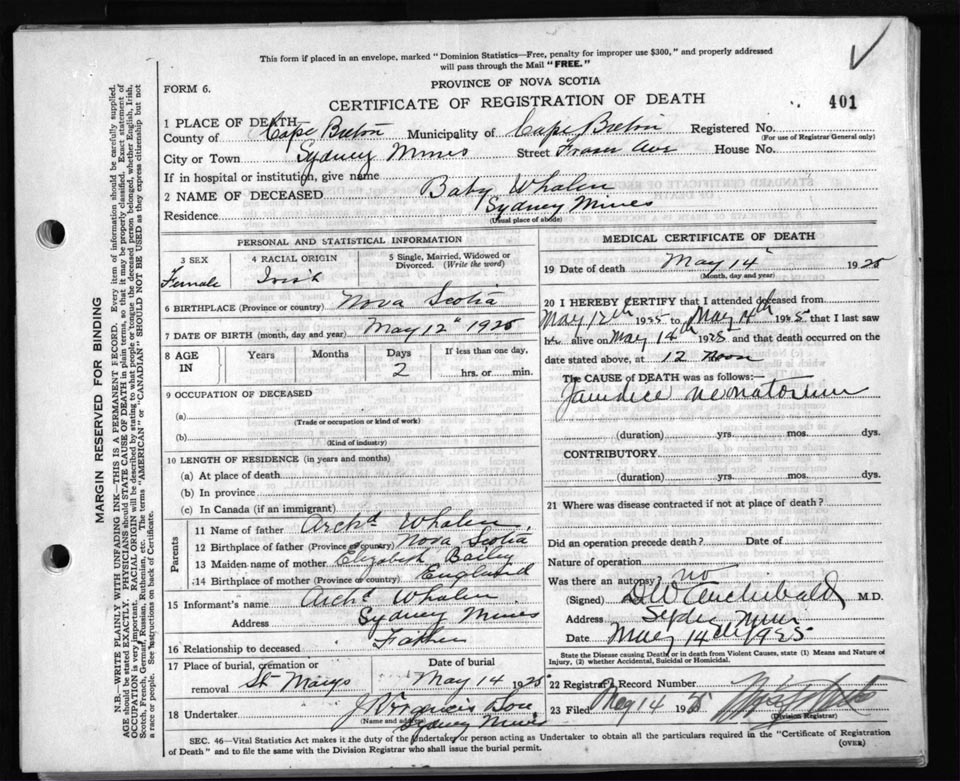 This form if placed in an envelope, marked "Dominion Statistics—Free, penalty for improper use $300," and properly addressed
will pass through the Mail "FREE."
PROVINCE OF NOVA SCOTIA
FORM 6.
CERTIFICATE OF REGISTRATION OF DEATH
401
1 PLACE OF DEATH
County of Cape Breton Municipality of Cape Breton Registered No.
(For use of Registrar General only)
City or Town Sydney Mines Street Fraser Ave House No.
If in hospital or institution, give name
2 NAME OF DECEASED Baby Whalen
Residence Sydney Mines
(Usual place of abode)
PERSONAL AND STATISTICAL INFORMATION
3 SEX 4 RACIAL ORIGIN 5 Single, Married, Widowed or
Divorced. (Write the word)
Female Irish
6 BIRTHPLACE (Province or country) Nova Scotia
7 DATE OF BIRTH (month, day and year) May 12" 1925
8 AGE IN Years Months Days If less than one day,
2 hrs. or min.
9 OCCUPATION OF DECEASED
(a)
(Trade or occupation or kind of work)
(b)
(Kind of industry)
10 LENGTH OF RESIDENCE (in years and months)
(a) At place of death
(b) In province
(c) In Canada (if an immigrant)
Parents
11 Name of father Archd Whalen
12 Birthplace of father (Province or country) Nova Scotia
13 Maiden name of mother Elizabeth Bailey
14 Birthplace of mother (Province or country) England
15 Informant's name Archd Whalen
Address Sydney Mines
16 Relationship to deceased Father
17 Place of burial, cremation or Date of burial
removal St Marys May 14 1925
18 Undertaker
(Name and address)
Sydney Mines
MEDICAL CERTIFICATE OF DEATH
19 Date of death May 14 1925
(Month, day and year)
20 I HEREBY CERTIFY that I attended deceased from
May 12th 1925 to May 14th 1925 that I last saw
her alive on May 14th 1925 and that death occurred on the
date stated above, at 12 noon
The CAUSE of DEATH was as follows:—
Jaundice neonatorum
(duration) yrs. mos. dys.
CONTRIBUTORY
(duration) yrs. mos. dys.
21 Where was disease contracted if not at place of death?
Did an operation precede death? Date of
Nature of operation
Was there an autopsy? no
(Signed) DW Archibald M.D.
Address Sydney Mines
Date May 14th 1925
State the Disease causing Death, or in death from Violent Causes, state (1) Means and Nature of
Injury, (2) whether Accidental, Suicidal or Homicidal.
22 Registrar's Record Number
23 Filed May 14 1925
(Division Registrar)
SEC. 46—Vital Statistics Act makes it the duty of the Undertaker or person acting as Undertaker to obtain all the particulars required in the "Certificate of Registration
of Death" and to file the same with the Division Registrar who shall issue the burial permit.
(OVER)
MARGIN RESERVED FOR BINDING
N.B. WRITE PLAINLY WITH UNFADING INK—THIS IS A PERMANENT RECORD. Every item of information should be carefully supplied.
AGE should be stated EXACTLY. PHYSICIANS should STATE CAUSE OF DEATH in plain terms, so that it may be properly classified. Exact statement of
OCCUPATION is very important. RACIAL ORIGIN will be described by stating to what people or tongue the deceased person belonged, whether English, Irish,
Scotch, French, German, Russian, Ruthenian, etc. The terms "AMERICAN" or "CANADIAN" SHOULD NOT BE USED as they express citizenship but not
a race or people. See instructions on back of Certificate.